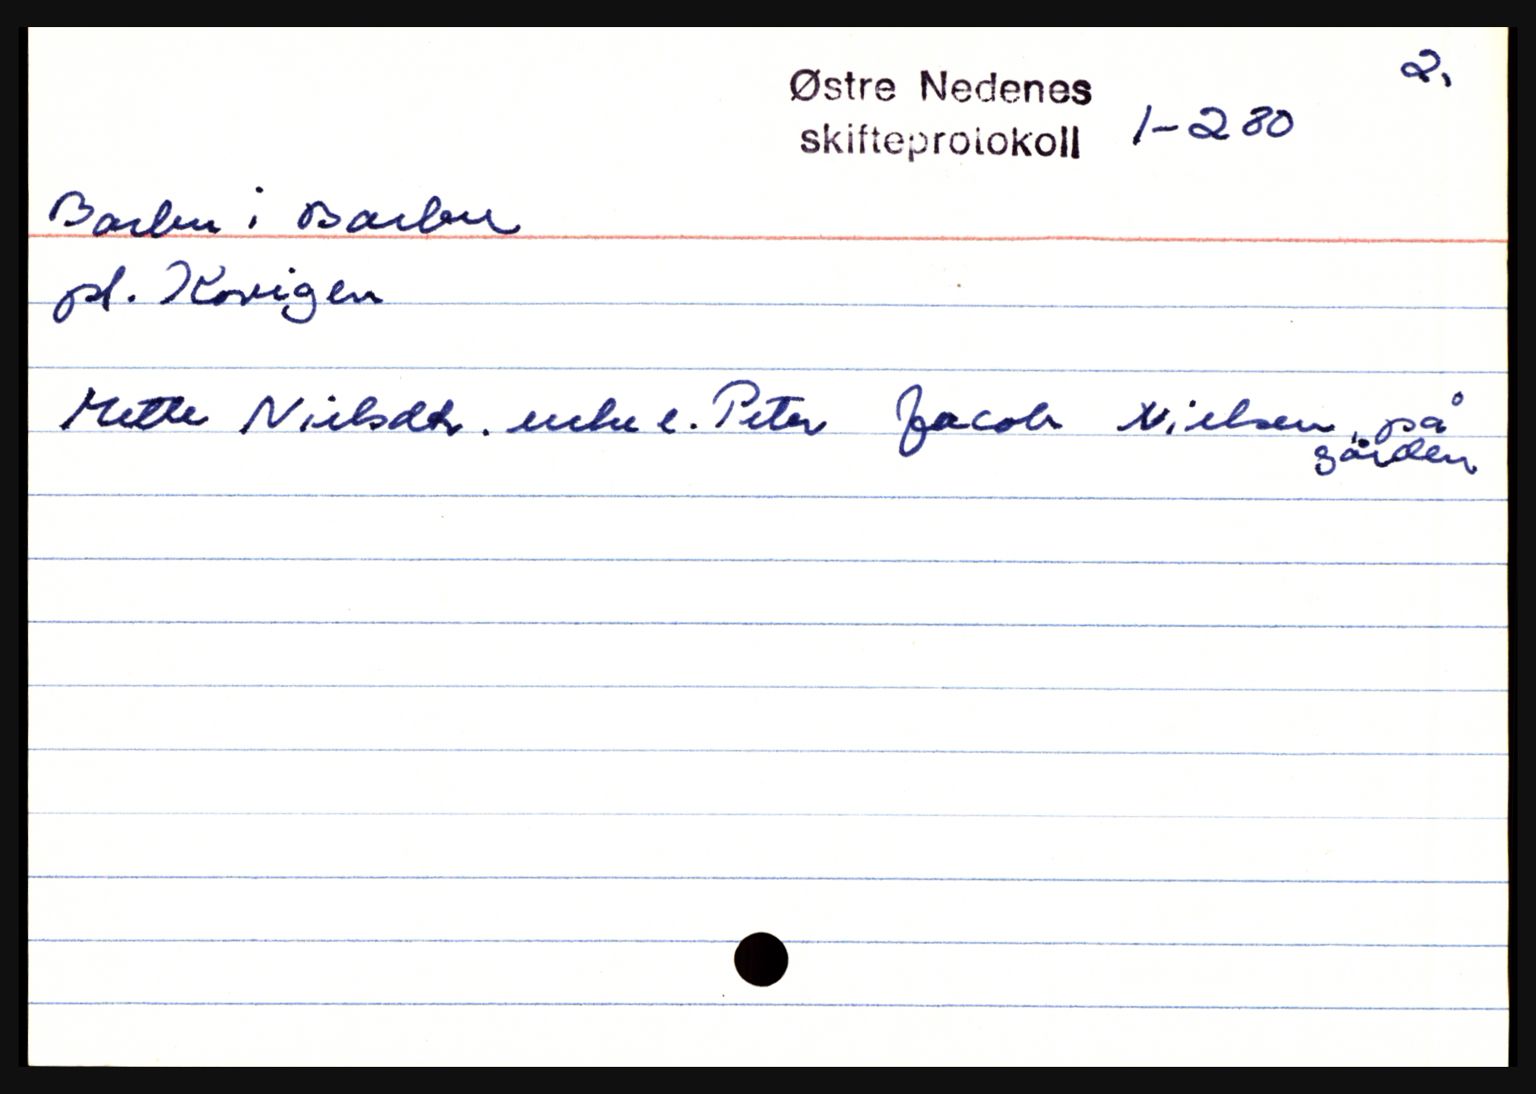 2.
Østre Nedenes
skifteprotokoll 1-280
Barbu i Barbu
pl. Kovigen
Mette Nielsdtr. enke e. Peter Jacob Nielsen, på
gården